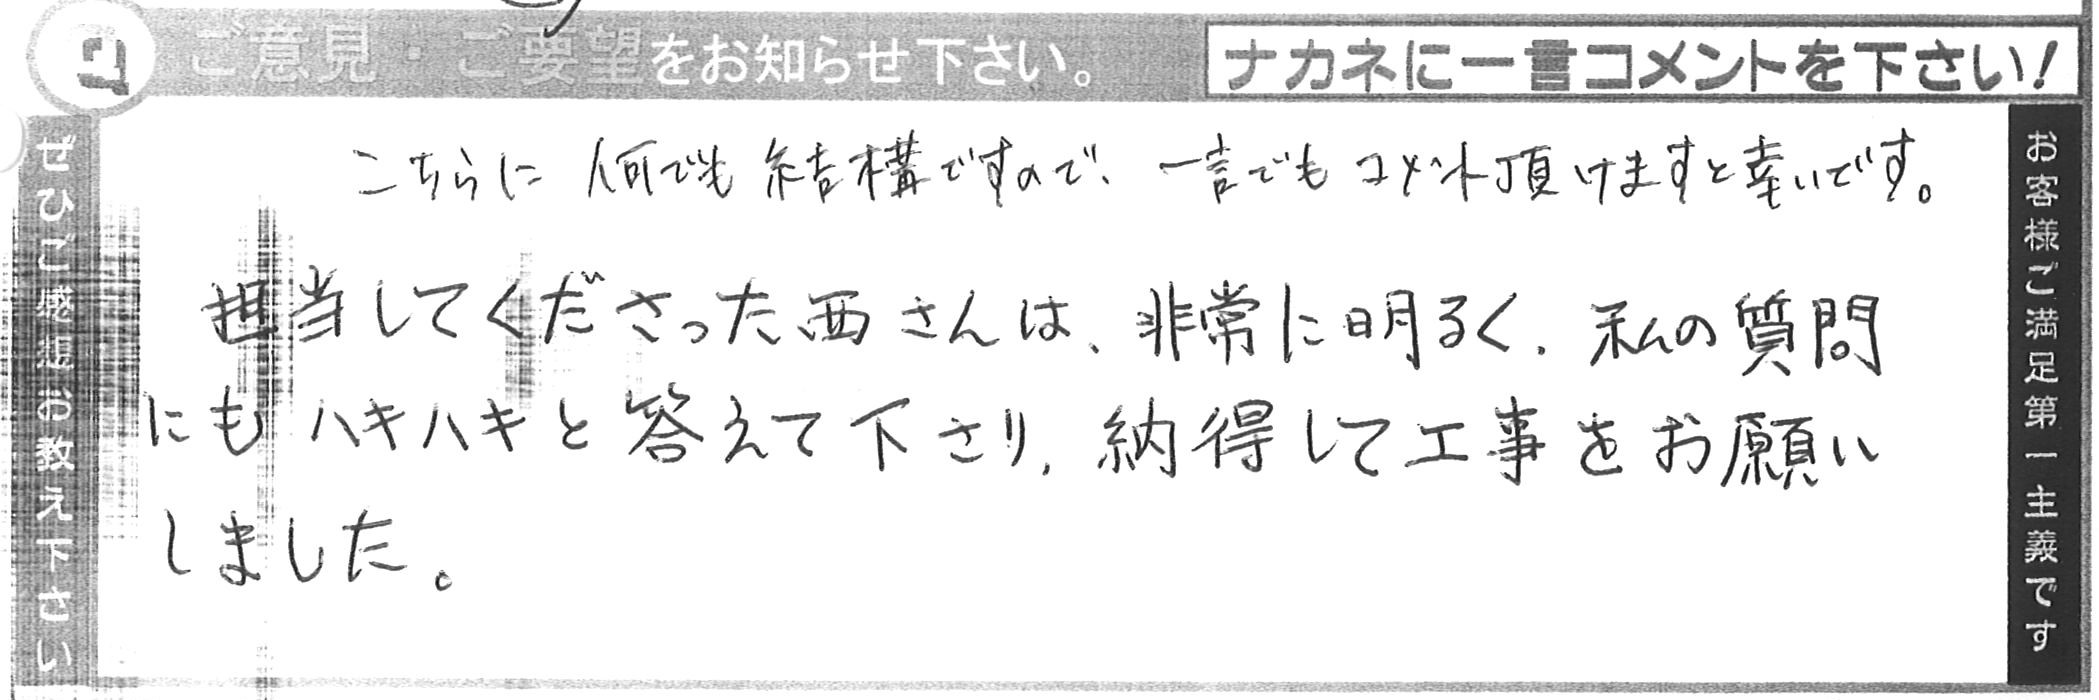 ご意見・ご要望をお知らせ下さい。
ナカネに一言コメントを下さい!
ぜひご感想お教え下さい
こちらに 何でも 結構ですので、一言でも コメント頂けますと幸いです。
担当してくださった西さんは、非常に明るく、私の質問
にも ハキハキと答えて下さり、納得して工事をお願い
しました。
お客様ご満足第一主義です